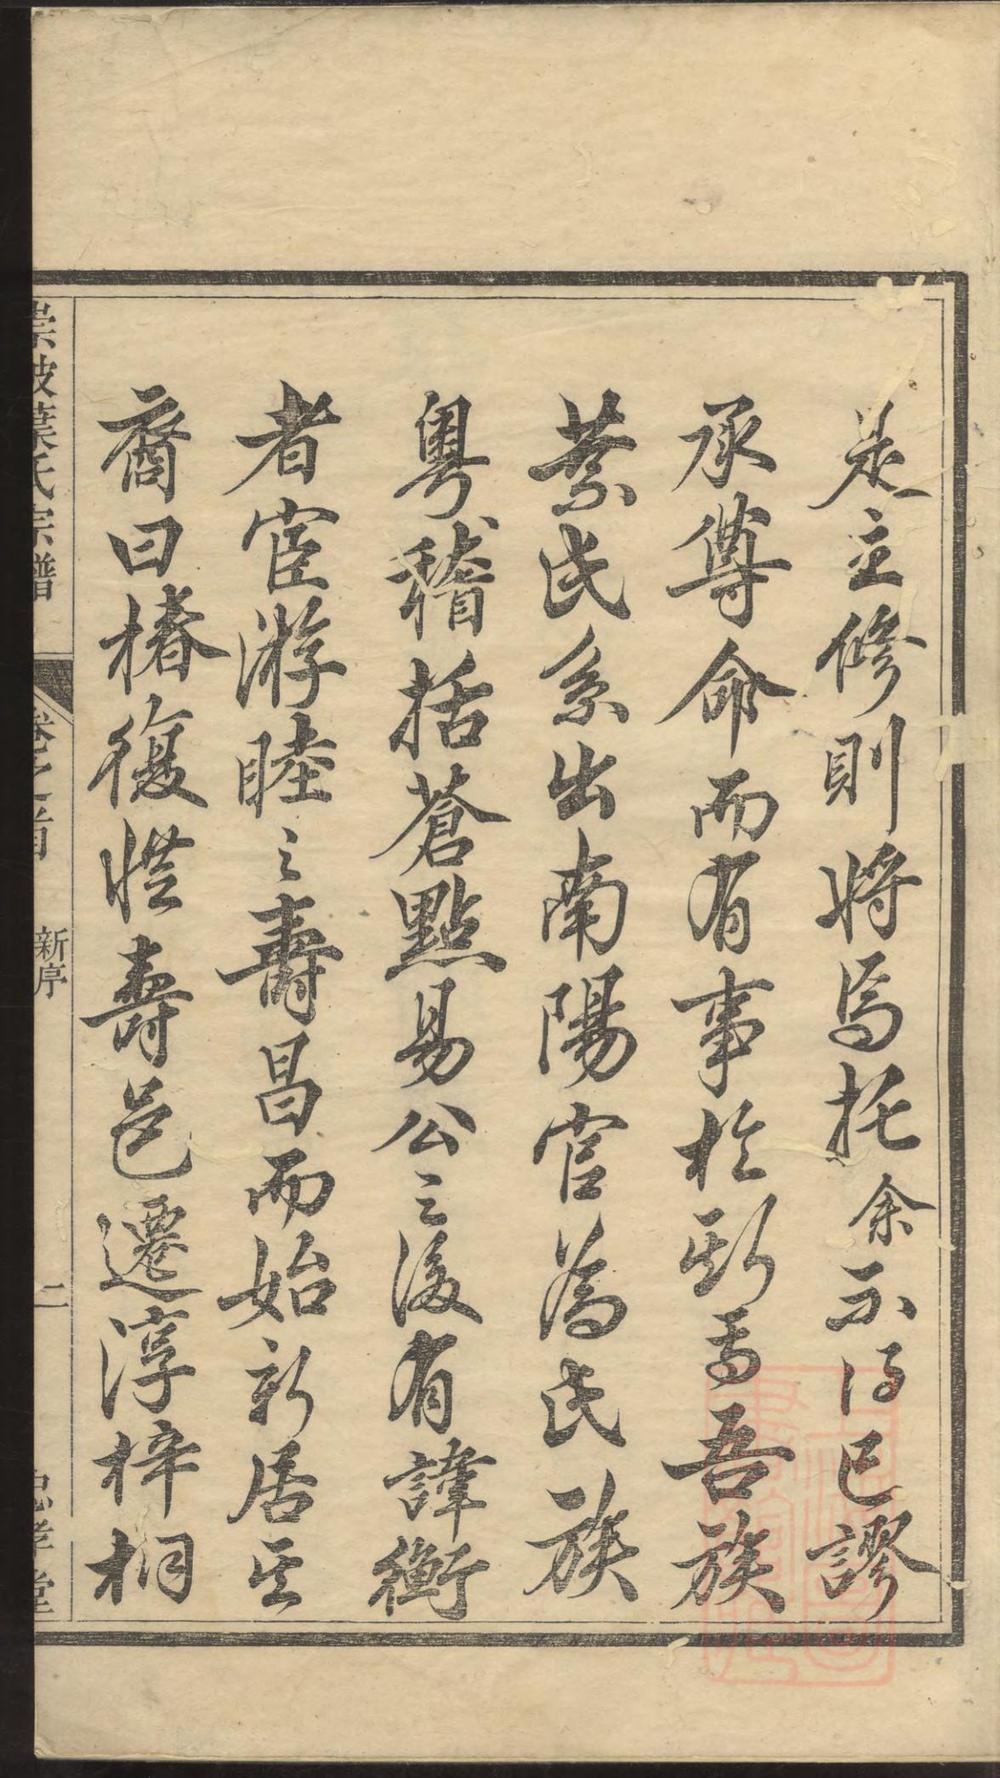 是主修則將焉托余不得已謬
承尊命而有事於斯焉吾族
葉氏系出南陽官為氏族
粵稽括蒼點易公之後有諱衡
者宦游睦之壽昌而始新居其
裔曰椿復悵壽邑遷淳梓桐
葉氏宗譜
卷之首
新序
二
忠孝堂